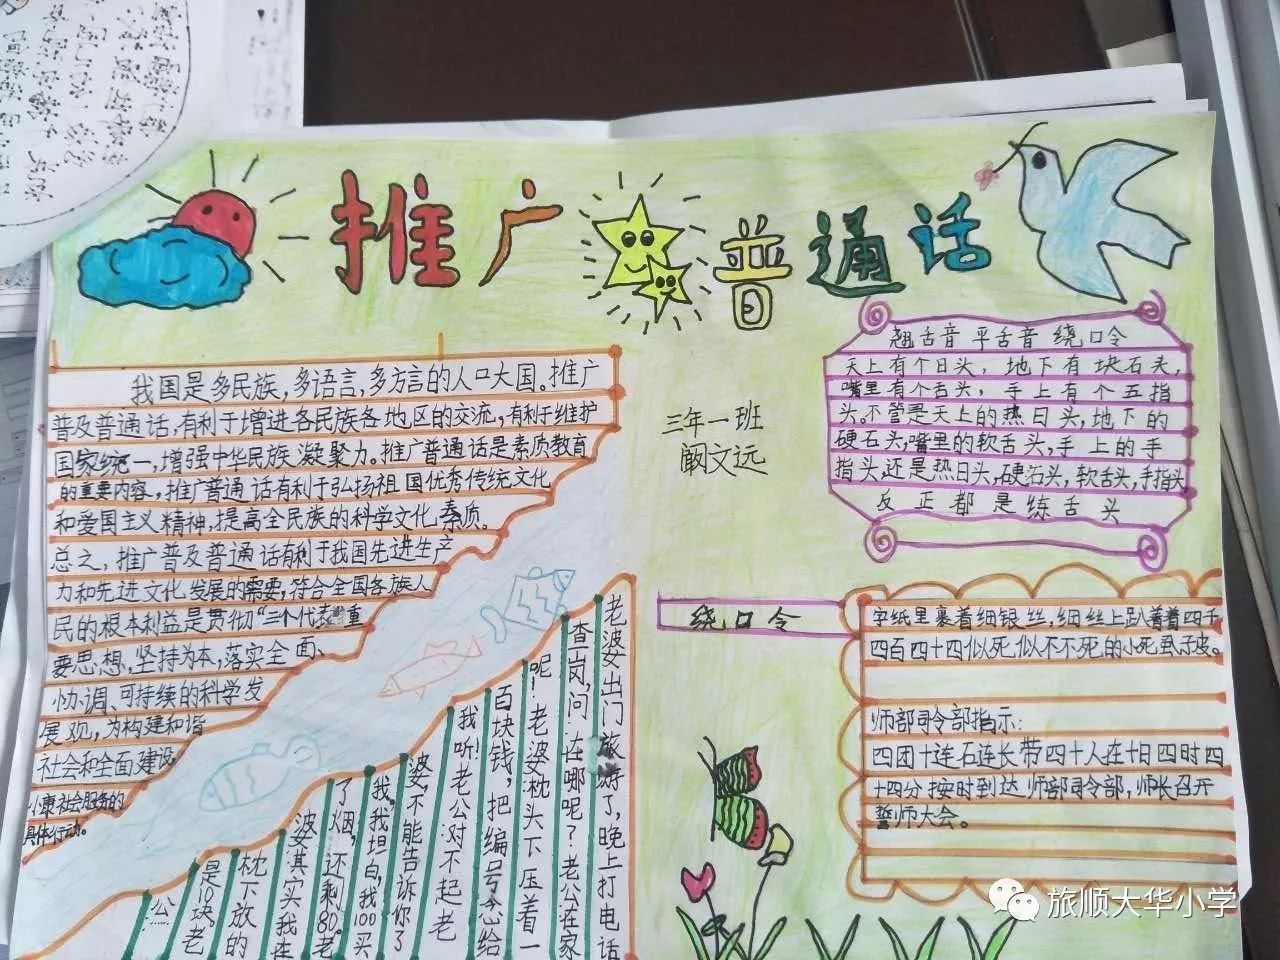 推广普通话
我国是多民族,多语言,多方言的人口大国。推广
普及普通话,有利于增进各民族各地区的交流,有利于维护
国家统一,增强中华民族凝聚力。推广普通话是素质教育
的重要内容,推广普通话有利于弘扬祖国优秀传统文化
和爱国主义精神,提高全民族的科学文化素质。
总之,推广普及普通话有利于我国先进生产
力和先进文化发展的需要,符合全国各族人
民的根本利益是贯彻“三个代表重
要思想,坚持为本,落实全面、
协调、可持续的科学发
展观,为构建和谐
社会和全面建设
小康社会服务的
具体行动。
三年一班
阚文远
翘舌音平舌音绕口令
天上有个日头,地下有块石头,
嘴里有个舌头,手上有个五指
头。不管是天上的热日头,地下的
硬石头,嘴里的软舌头,手上的手
指头还是热日头,硬石头,软舌头,手指头
反正都是练舌头
绕口令
字纸里裹着细银丝,细丝上趴着着四千
四百四十四似死,似不不死的小死虱子皮。
师部司令部指示:
四团十连石连长带四十人在十日四时四
十四分按时到达师部司令部,师长召开
誓师大会。
老婆出门旅游了,晚上打电话
查岗,问在哪呢?老公在家
呢!老婆枕头下压着一
百块钱,把编号念给
我听!老公对不起老
婆,不能告诉你了
我。我坦白,我100买
了烟,还剩80。老
婆其实我在
枕下放的
是10块。老
公
旅顺大华小学